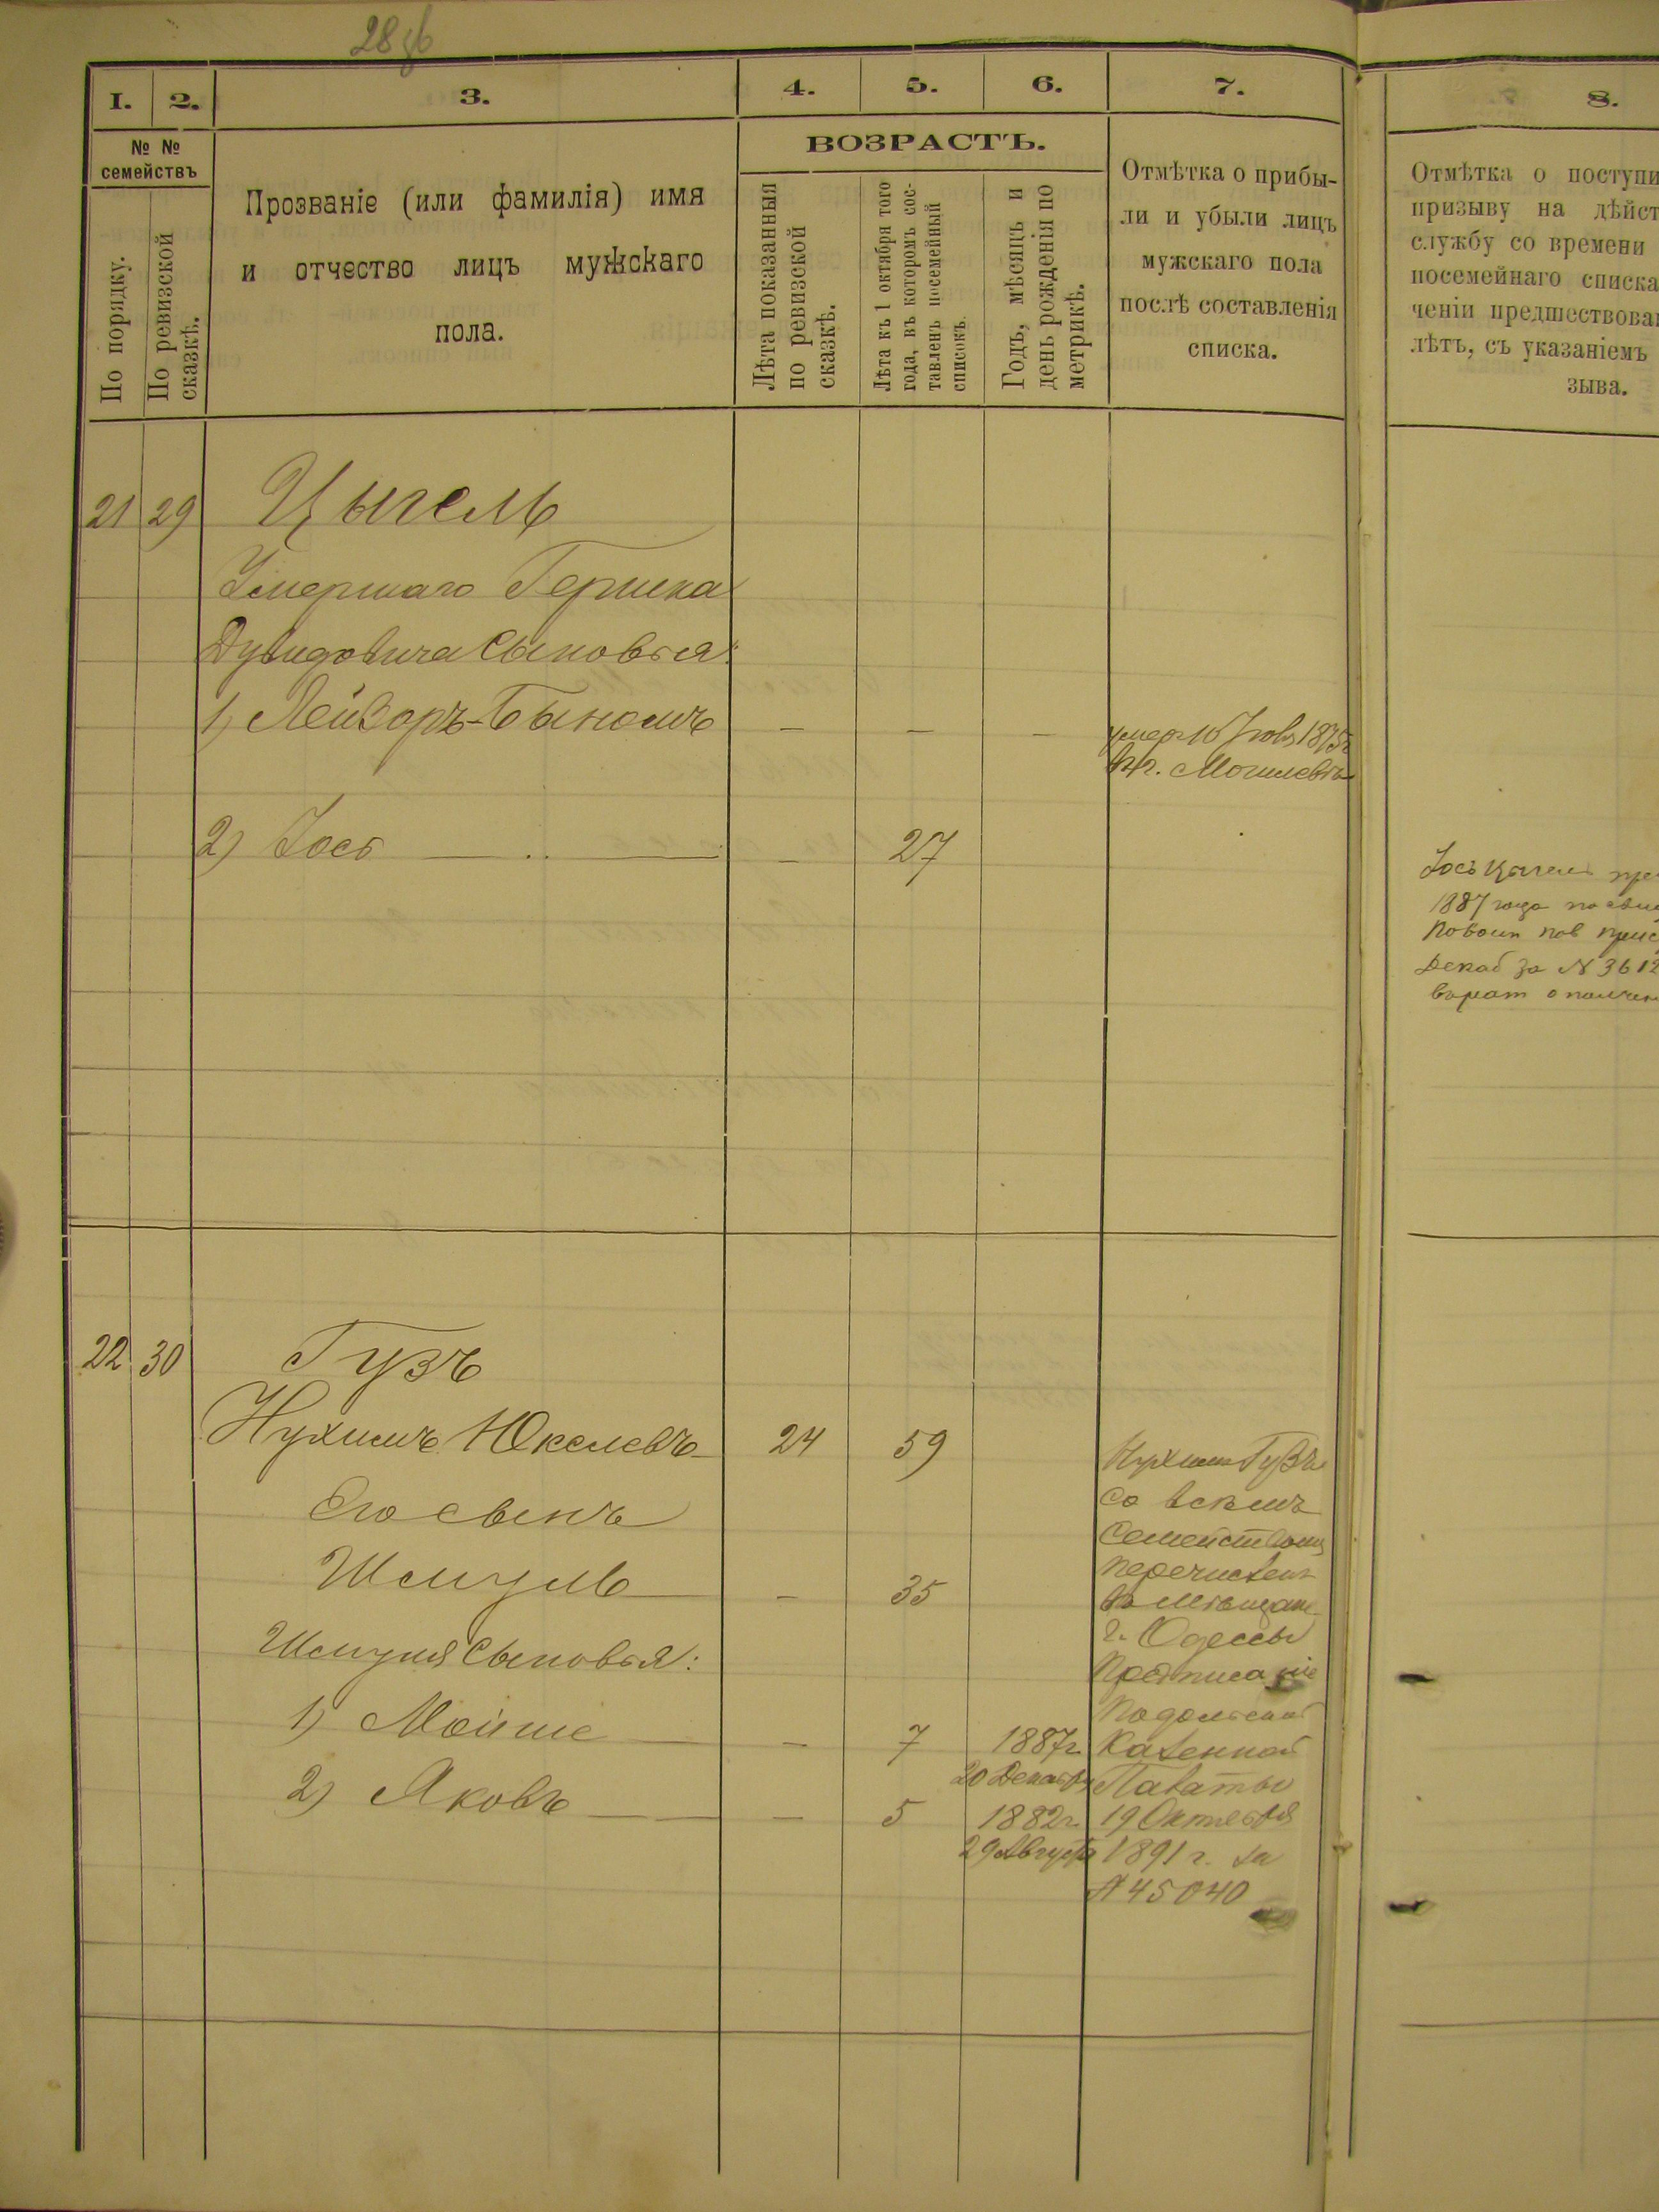 28 зб
1. 2. 3. 4. 5. 6. 7. 8.
№ №
семействъ
По порядку.
По ревизской
сказкѣ.
Прозваніе (или фамилія) имя
и отчество лицъ мужскаго
пола.
ВОЗРАСТЪ.
Лѣта показанныя
по ревизской
сказкѣ.
Лѣта къ 1 октября того
года, въ которомъ сос-
тавленъ посемейный
списокъ.
Годъ, мѣсяцъ и
день рожденія по
метрикѣ.
Отмѣтка о прибы-
ли и убыли лицъ
мужскаго пола
послѣ составленія
списка.
Отмѣтка о поступи
призыву на дѣйст
службу со времени
посемейнаго списка
ченіи предшествова
лѣтъ, съ указаніемъ
зыва.
21 29 Цыгель
Умершаго Гершка
Дувидовича сыновья:
1) Лейзоръ-Быномъ — — — умер 16 1875г
въ г. Могилевѣ
2) Іось — 27
Іось Цыгель
1887 года
Декаб за № 3612
22 30 Гузъ
Нухимъ Юкелевъ 24 59
Его сынъ
Шмуль — 35
Шмуля сыновья:
1) Мойше — 7 1887г.
20 Декабря
2) Яковъ — 5 1882г.
29 Августа
Нухимъ Гузъ
со всемъ
Семействомъ
перечисленъ
въ Мѣщане
г. Одессы
Предписаніе
Подольской
Казенной
Палаты
19 Октября
1891 г. за
№ 45040